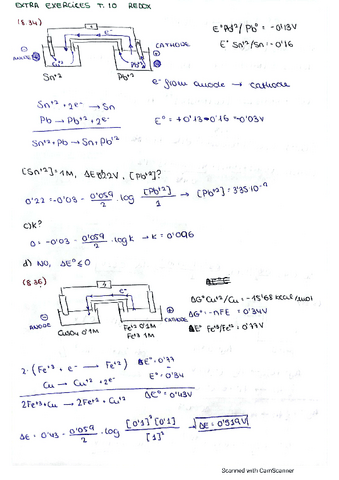 EXTRA EXERCICES T.10 REDOX
(8.34)
e⁻
E° Pd⁺²/Pb° = -0'13V
E° Sn⁺²/Sn = -0'16
⊖ ANODE
⊕ CATHODE
Sn⁺² Pb⁺²
e⁻ flow anode → cathode
Sn⁺² + 2e⁻ → Sn
Pb → Pb⁺² + 2e⁻
E° = +0'13-0'16 = -0'03V
Sn⁺² + Pb → Sn + Pb⁺²
[Sn⁺²] = 1M, ΔE 0'22V, [Pb⁺²]?
0'22 = -0'03 - 0'059/2 · log [Pb⁺²]/1 → [Pb⁺²] = 3'35·10⁻⁹
c) K?
0 = -0'03 - 0'059/2 · log K → K = 0'096
d) NO, ΔE° ≤ 0
(8.36)
e⁻
ΔG° Cu⁺²/Cu = -15'68 kcal/mol
ΔG° = -nFE = 0'34V
ΔE° Fe⁺³/Fe⁺² = 0'77V
⊖ ANODE
⊕ CATHODE
CuSO₄ 0'1M
Fe⁺² 0'1M
Fe⁺³ 1M
2·(Fe⁺³ + e⁻ → Fe⁺²) ΔE° = 0'77
Cu → Cu⁺² + 2e⁻ E° = 0'34
2Fe⁺³ + Cu → 2Fe⁺² + Cu⁺² ΔE° = 0'43V
ΔE = 0'43 - 0'059/2 · log [0'1]²[0'1]/[1]² → ΔE = 0'519V
Scanned with CamScanner